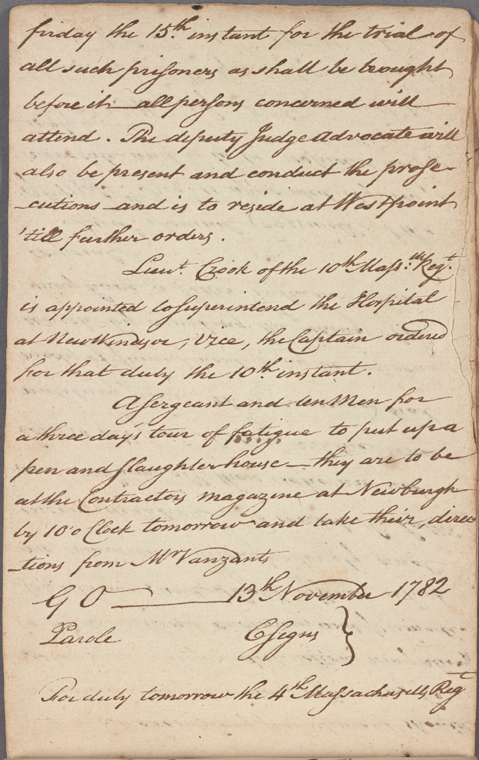 friday the 15th instant for the trial of
all such prisoners as shall be brought
before it—all persons concerned will
attend. The deputy Judge Advocate will
also be present and conduct the prose-
-cutions—and is to reside at Westpoint
'till further orders.
Lieut. Crook of the 10th Massts. Regt.
is appointed to Superintend the Hospital
at New Windsor, Vice, the Captain ordered
for that duty the 10th instant.
A Sergeant and ten Men for
a three day's tour of fatigue to put up a
pen and slaughter house—they are to be
at the Contractors magazine at Newburgh
by 10 o Clock tomorrow and take their direc
-tions from Mr Vanzants
G O — 13th November 1782
Parole Csigns }
For duty tomorrow the 4th Massachusetts Regt